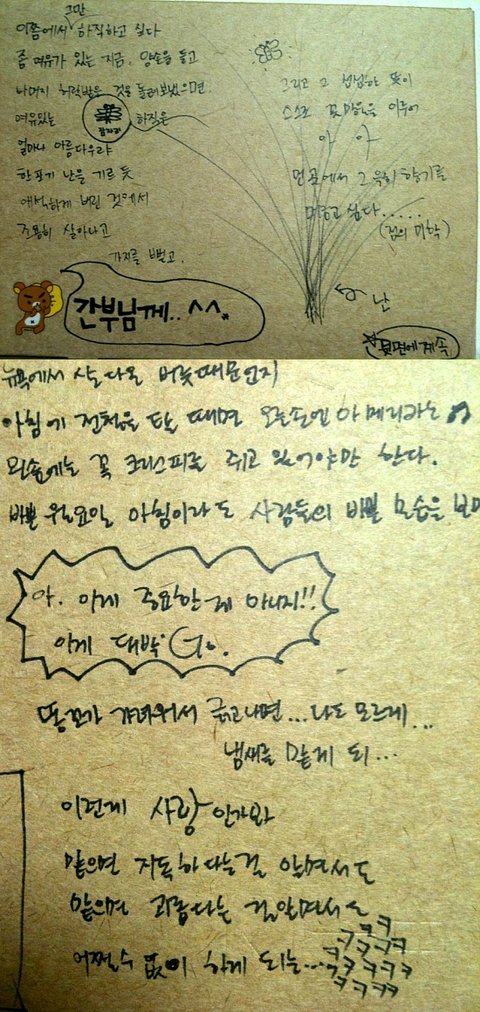 그만
이쯤에서 하직하고 싶다
좀 여유가 있는 지금, 양손을 들고
나머지 허락받은 것을 돌려보냈으면
여유있는 하직은
얼마나 아름다우랴
한 포기 난을 기르듯
애석하게 버린 것에서
조용히 살아나고
가지를 뻗고,
그리고 그 섭섭한 뜻이
스스로 꽃망울을 이루어
아 아
먼곳에서 그윽히 향기를
머금고 싶다......
난
간부님께.. ^^.
뒷면에 계속
뉴욕에서 살다온 버릇때문인지
아침에 전철을 탈 때면 오른손엔 아메리카노
왼손에는 꼭 크리스피를 쥐고 있어야만 한다.
바쁜 월요일 아침이라도 사람들의 바쁜 모습을 보며
아. 이게 중요한게 아니지!!
이게 대박 Go.
똥꼬가 가려워서 긁고나면...나도 모르게...
냄새를 맡게 되...
이런게 사랑인가봐
맡으면 지독하다는걸 알면서도
맡으면 괴롭다는 걸알면서도
어쩔수 없이 하게 되는...ㅋㅋㅋㅋ